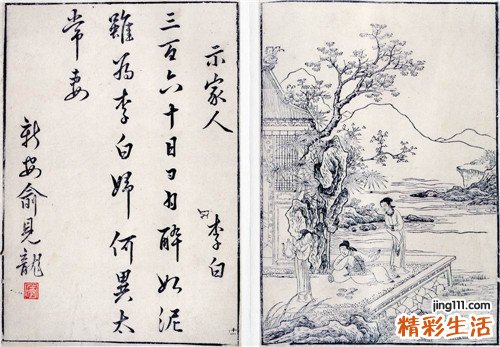 示家人
李白
三百六十日日日醉如泥
雖為李白婦何異太
常妻
新安俞見龍
jing111.com
精彩生活